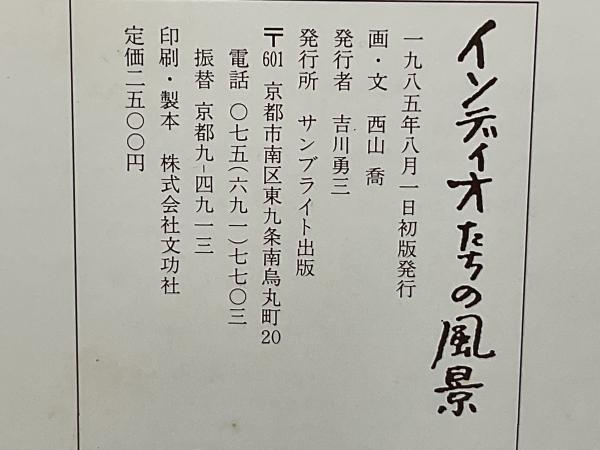 インディオたちの風景
一九八五年八月一日初版発行
画・文　西山　喬
発行者　吉川勇三
発行所　サンブライト出版
〒601　京都市南区東九条南烏丸町20
電話　〇七五(六九一)七七〇三
振替　京都九-四九一三
印刷・製本　株式会社文功社
定価二五〇〇円